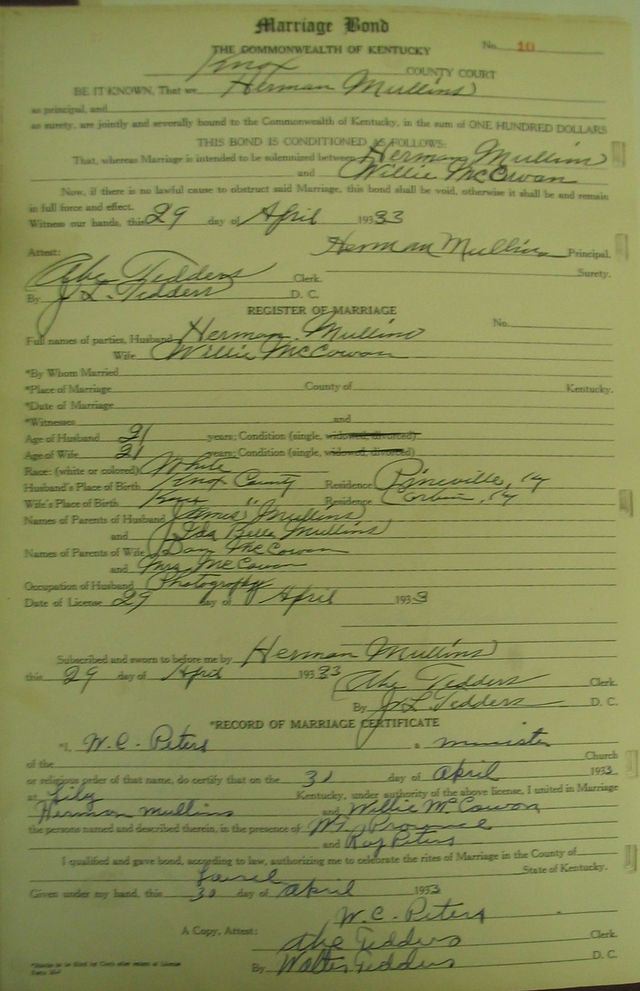 Marriage Bond
THE COMMONWEALTH OF KENTUCKY No. 10
Knox COUNTY COURT
BE IT KNOWN, That we Herman Mullins
as principal, and
as surety, are jointly and severally bound to the Commonwealth of Kentucky, in the sum of ONE HUNDRED DOLLARS
THIS BOND IS CONDITIONED AS FOLLOWS:
That, whereas Marriage is intended to be solemnized between Herman Mullins
and Willie McCowan
Now, if there is no lawful cause to obstruct said Marriage, this bond shall be void, otherwise it shall be and remain
in full force and effect.
Witness our hands, this 29 day of April 19333
Herman Mullins Principal.
Attest: Surety.
Abe Tedders Clerk.
By J. L. Tedders D. C.
REGISTER OF MARRIAGE
No.
Full names of parties, Husband Herman Mullins
Wife Willie McCowan
*By Whom Married
*Place of Marriage County of Kentucky.
*Date of Marriage
*Witnesses and
Age of Husband 21 years; Condition (single, widowed, divorced)
Age of Wife 21 years; Condition (single, widowed, divorced)
Race: (white or colored) White
Husband's Place of Birth Knox County Residence Pineville, Ky
Wife's Place of Birth Knox " Residence Corbin, Ky
Names of Parents of Husband James Mullins
and Ida Bell Mullins
Names of Parents of Wife Dan McCowan
and Mrs McCowan
Occupation of Husband Photography
Date of License 29 day of April 1933
Subscribed and sworn to before me by Herman Mullins
this 29 day of April 19333
Abe Tedders Clerk.
By J. L. Tedders D. C.
*RECORD OF MARRIAGE CERTIFICATE
*I, W. C. Peters a minister
of the Church
or religious order of that name, do certify that on the 30 day of April 1933
at Lily Kentucky, under authority of the above license, I united in Marriage
Herman Mullins and Willie McCowon
the persons named and described therein, in the presence of
and Roy Peters
I qualified and gave bond, according to law, authorizing me to celebrate the rites of Marriage in the County of
Laurel State of Kentucky.
Given under my hand, this 30 day of April 1933
W. C. Peters
A Copy, Attest: Abe Tedders Clerk.
By Walter Tedders D. C.